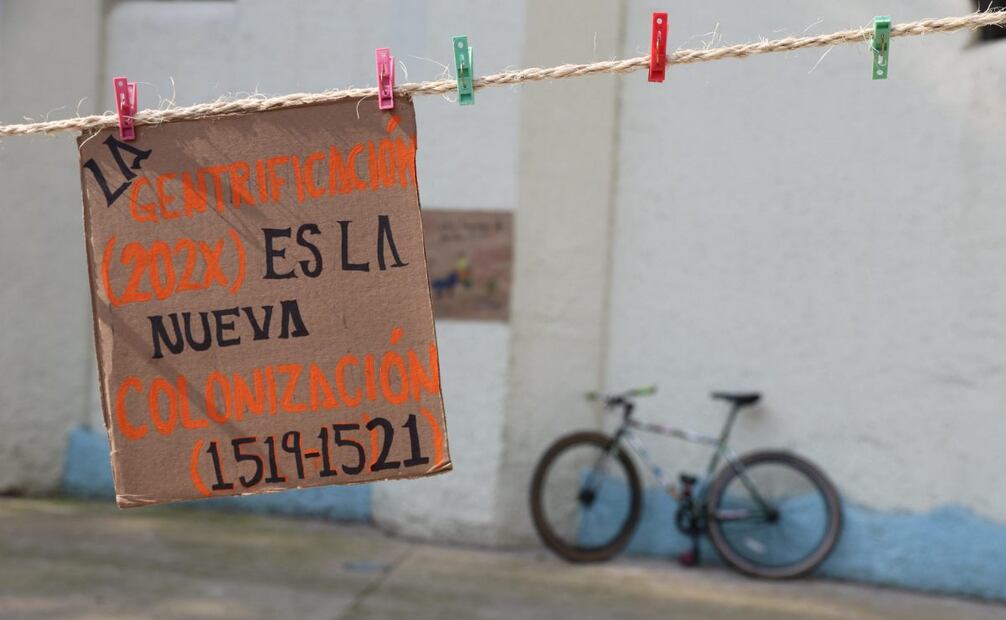 LA
GENTRIFICACIÓN
(202X) ES LA
NUEVA
COLONIZACIÓN
(1519-1521)